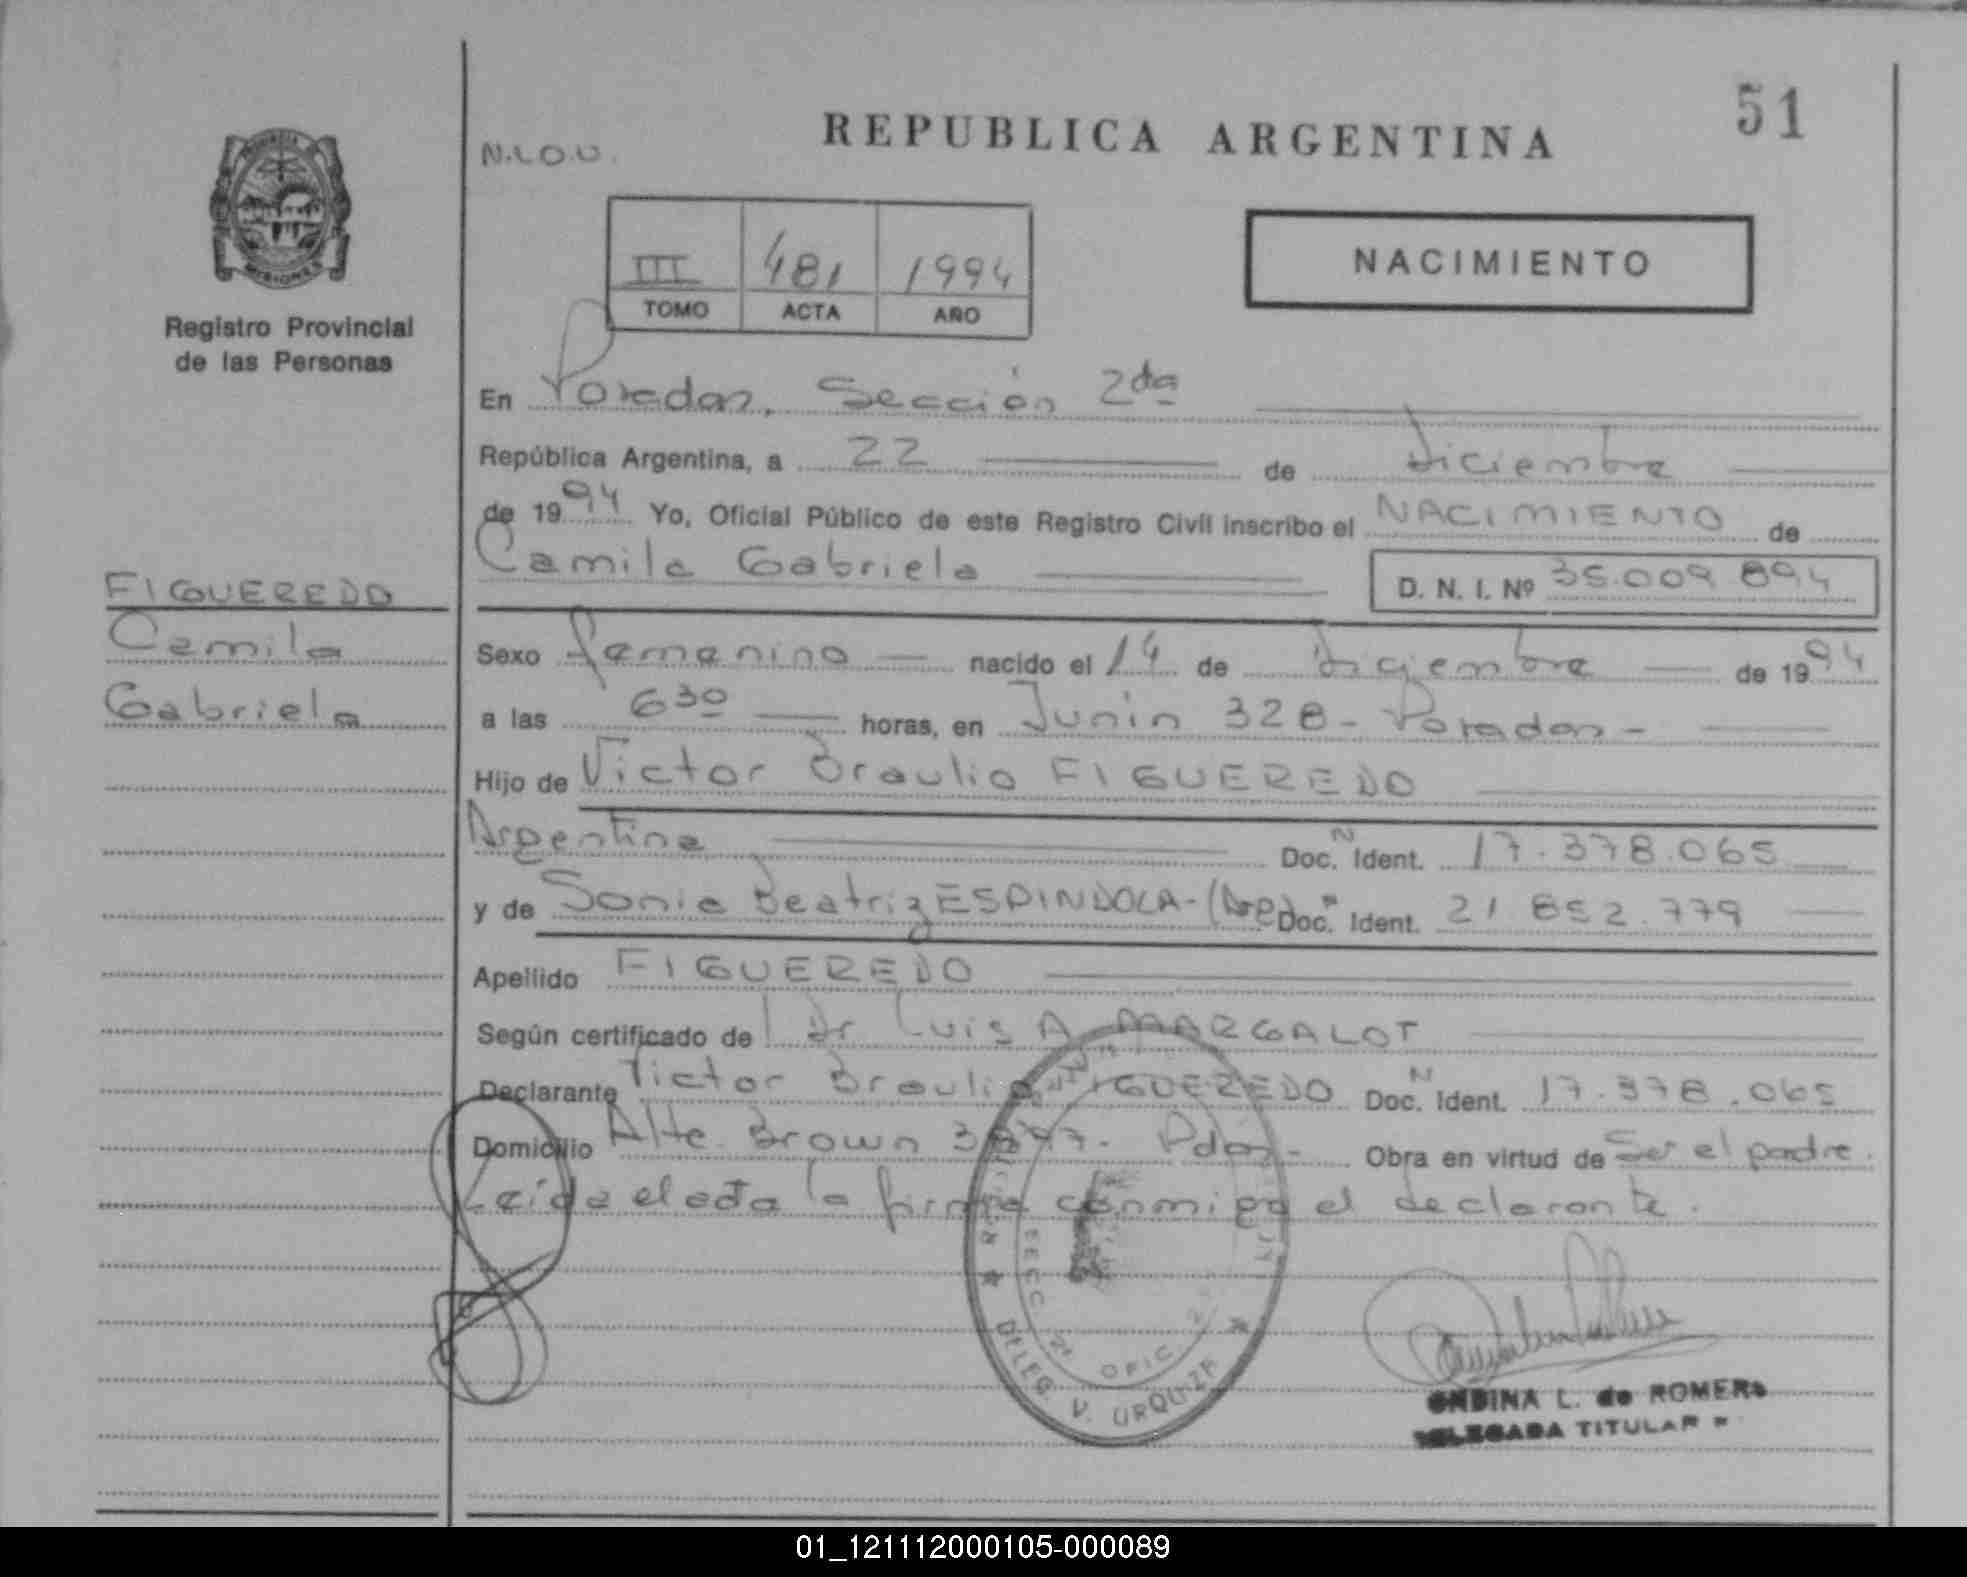 51
REPUBLICA ARGENTINA
N.L.O.U.
III 481 1994
TOMO ACTA AÑO
NACIMIENTO
MISIONES
Registro Provincial
de las Personas
En Posadas, Sección 2da
República Argentina, a 22 de diciembre
de 1994 Yo, Oficial Público de este Registro Civil inscribo el NACIMIENTO de
Camila Gabriela D. N. I. Nº 35.009.894
FIGUEREDO
Camila
Gabriela
Sexo femenino nacido el 14 de diciembre de 1994
a las 6 30 horas, en Junín 328 - Posadas -
Hijo de Victor Braulio FIGUEREDO
Argentina Doc. N Ident. 17.378.065
y de Sonia Beatriz ESPINDOLA - (Arg) Doc. Ident. 21.852.779
Apellido FIGUEREDO
Según certificado de Dr Luis A. MARGALOT
Declarante Victor Braulio FIGUEREDO Doc. N Ident. 17.378.065
Domicilio Alte. Brown Pdas - Obra en virtud de Ser el padre.
Leída el acta la firma conmigo el declarante.
DELEG. V. URQUIZA
OFIC.
ONDINA L. de ROMERO
DELEGADA TITULAR
01_121112000105-000089